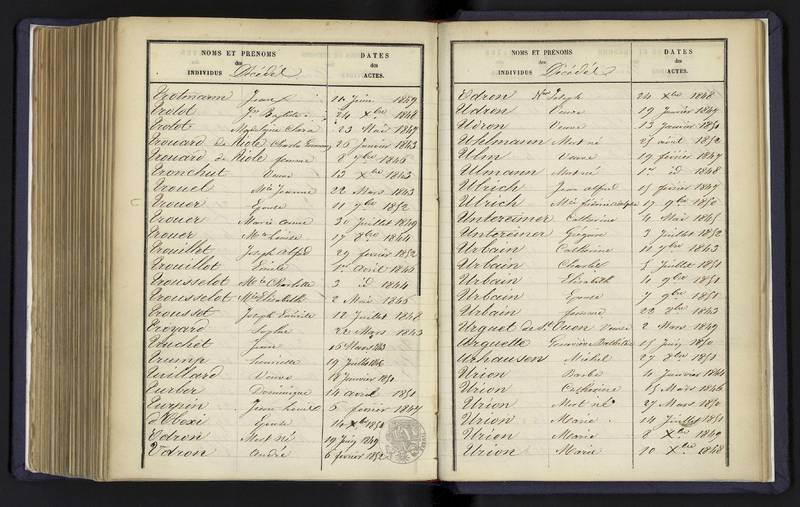 NOMS ET PRÉNOMS
des
INDIVIDUS Décédés
DATES
des
ACTES.
Trotmann Jean 11 Juin 1849
Trotot Jn Baptiste 24 Xbre 1848
Trotot Magdelaine Clara 23 Mai 1849
Trouard de Riolle Charles 26 Janvier 1843
Trouard de Riolle femme 8 9bre 1846
Tronchut Veuve 13 Xbre 1843
Trouel Mie Jeanne 22 Mars 1843
Trouer Epouse 11 9bre 1852
Trouer Marie anne 30 Juillet 1849
Trouer Mie Louise 17 8bre 1844
Trouillet Joseph Alfred 29 fevrier 1852
Trouillot Emile 1er Avril 1844
Trousselot Mie Charlotte 3 id 1844
Trousselot Mie Elisabeth 2 Mai 1846
Trousset Joseph 12 Juillet 1848
Troyard Sophie 22 Mars 1843
Truchot Jean 16 Mars 1843
Trump Henriette 19 Juillet 1846
Tuillard Veuve 18 Janvier 1851
Turber Dominique 14 avril 1851
Turpin Jean Louis 5 fevrier 1847
d'Ubexi Epouse 14 Xbre 1850
Udron Mort né 19 Juin 1849
Udron André 6 fevrier 1852
NOMS ET PRÉNOMS
des
INDIVIDUS Décédés
DATES
des
ACTES.
Udron Nas Joseph 24 Xbre 1848
Udron Veuve 19 Janvier 1847
Udron Veuve 13 Janvier 1851
Uhlmann Mort né 25 aout 1852
Ulm Veuve 19 fevrier 1847
Ulmann Mort né 1er id 1848
Ulrich Jean alfred 15 fevrier 1847
Ulrich Mie 17 9bre 1850
Untereiner Catherine 4 Mai 1845
Untereiner Grégoire 3 Juillet 1852
Urbain Catherine 11 7bre 1843
Urbain Charles 5 Juillet 1851
Urbain Elisabeth 4 9bre 1851
Urbain Epouse 7 9bre 1851
Urbain femme 22 8bre 1843
Urguet de St Ouen Veuve 2 Mars 1849
Urguette Geneviève 15 Juin 1850
Urhausen Michel 27 8bre 1851
Urion Barbe 4 Janvier 1844
Urion Catherine 15 Mars 1846
Urion Mort né 27 Mars 1850
Urion Marie 14 Juillet 1851
Urion Marie 8 Xbre 1849
Urion Marie 10 Xbre 1848